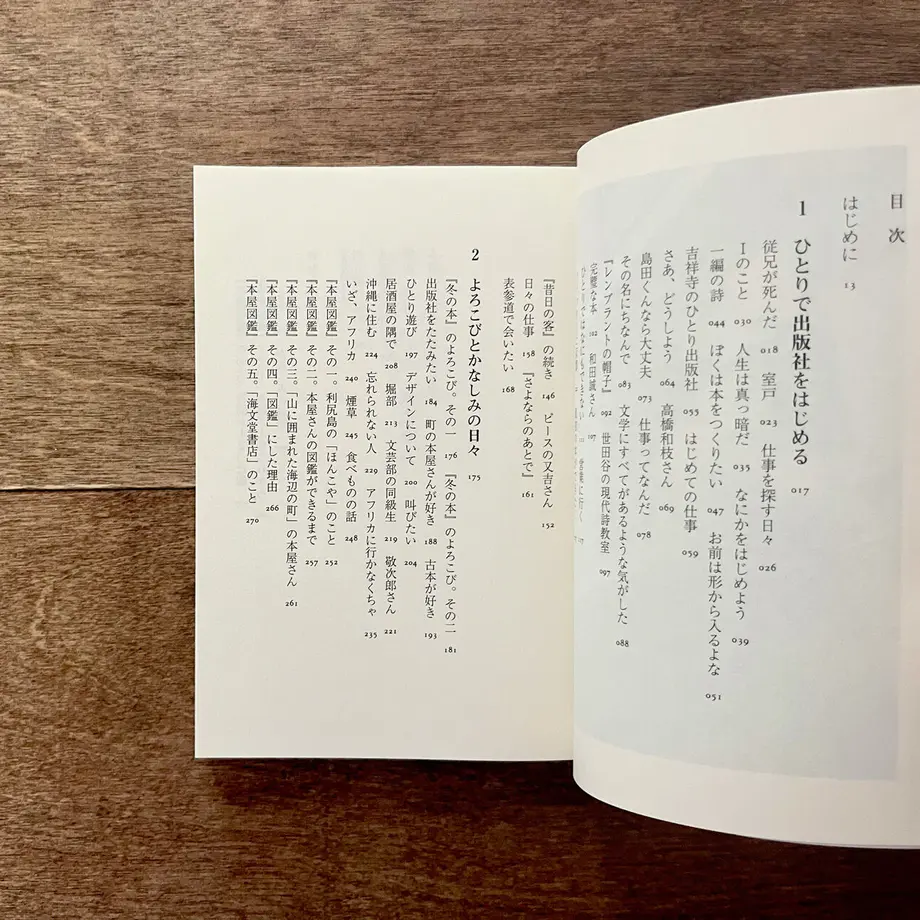 目次
はじめに 13
1 ひとりで出版社をはじめる 017
従兄が死んだ 018 室戸 023 仕事を探す日々 026
Iのこと 030 人生は真っ暗だ 035 なにかをはじめよう 039
一編の詩 044 ぼくは本をつくりたい 047 お前は形から入るよな 051
吉祥寺のひとり出版社 055 はじめての仕事 059
さあ、どうしよう 064 高橋和枝さん 069
島田くんなら大丈夫 073 仕事ってなんだ 078
その名にちなんで 083 文学にすべてがあるような気がした 088
『レンブラントの帽子』 092 世田谷の現代詩教室 097
完璧な本 102 和田誠さん 107
『昔日の客』の続き 146 ピースの又吉さん 152
日々の仕事 158 『さよならのあとで』 161
表参道で会いたい 168
2 よろこびとかなしみの日々 175
『冬の本』のよろこび。その一 176 『冬の本』のよろこび。その二 181
出版社をたたみたい 184 町の本屋さんが好き 188 古本が好き 193
ひとり遊び 197 デザインについて 200 叫びたい 204
居酒屋の隅で 208 堀部 213 文芸部の同級生 219 敬次郎さん 221
沖縄に住む 224 忘れられない人 229 アフリカに行かなくちゃ 235
いざ、アフリカ 240 煙草 245 食べものの話 248
『本屋図鑑』その一。利尻島の「ほんこや」のこと 252
『本屋図鑑』その二。本屋さんの図鑑ができるまで 257
『本屋図鑑』その三。「山に囲まれた海辺の町」の本屋さん 261
『本屋図鑑』その四。「図鑑」にした理由 266
『本屋図鑑』その五。「海文堂書店」のこと 270